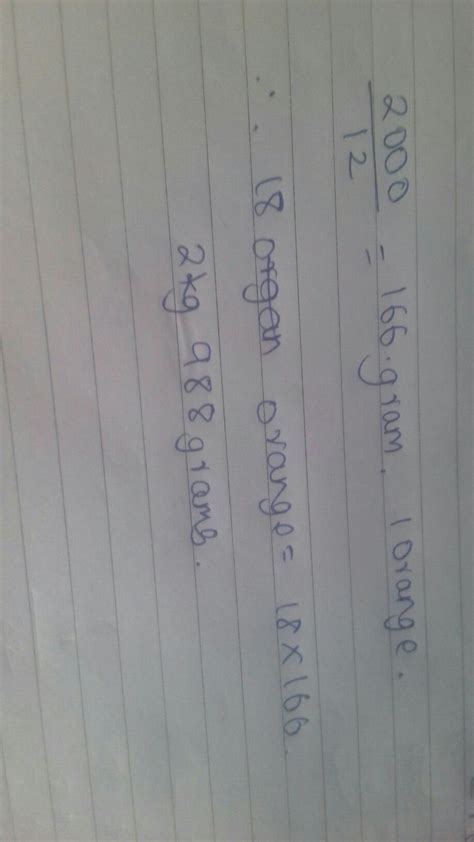 2000
12
= 166.gram. 1 orange.
∴ 18 organ orange = 18 × 166.
2kg 988 grams.